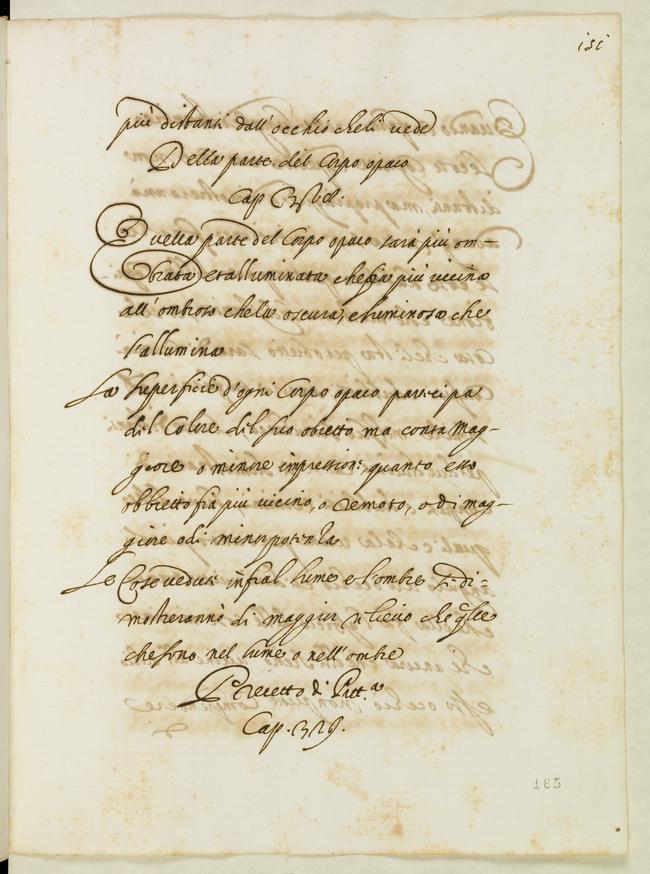 151
più distanti dall'occhio cheli vede
Della parte del Corpo opaco
Cap. 328.
Quella parte del Corpo opaco sarà più om-
brata et alluminata che sia più vicina
all'ombroso chela oscura, e luminoso che
l'allumina
La superficie d'ogni Corpo opaco partecipa
del Colore del suo obietto ma con ta Mag-
giore o minore impressione, quanto esso
obbietto fia più vicino, o remoto, o di mag-
giore o di minor potenza
Le Cose vedute infral lume e l'ombre si di-
mostreranno di maggior rilievo che q̃lle
che sono nel lume o nell'ombre
Precetto di Pitt.a
Cap. 329.
165